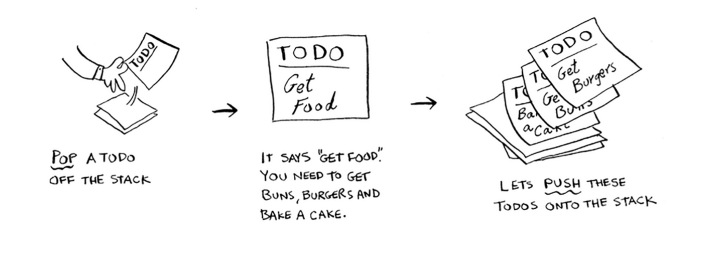 TODO
POP A TODO
OFF THE STACK
TODO
Get
Food
IT SAYS "GET FOOD."
YOU NEED TO GET
BUNS, BURGERS AND
BAKE A CAKE.
TODO
Get
Burgers
TO
Ge
Buns
TO
Ba
a Cake
LETS PUSH THESE
TODOS ONTO THE STACK